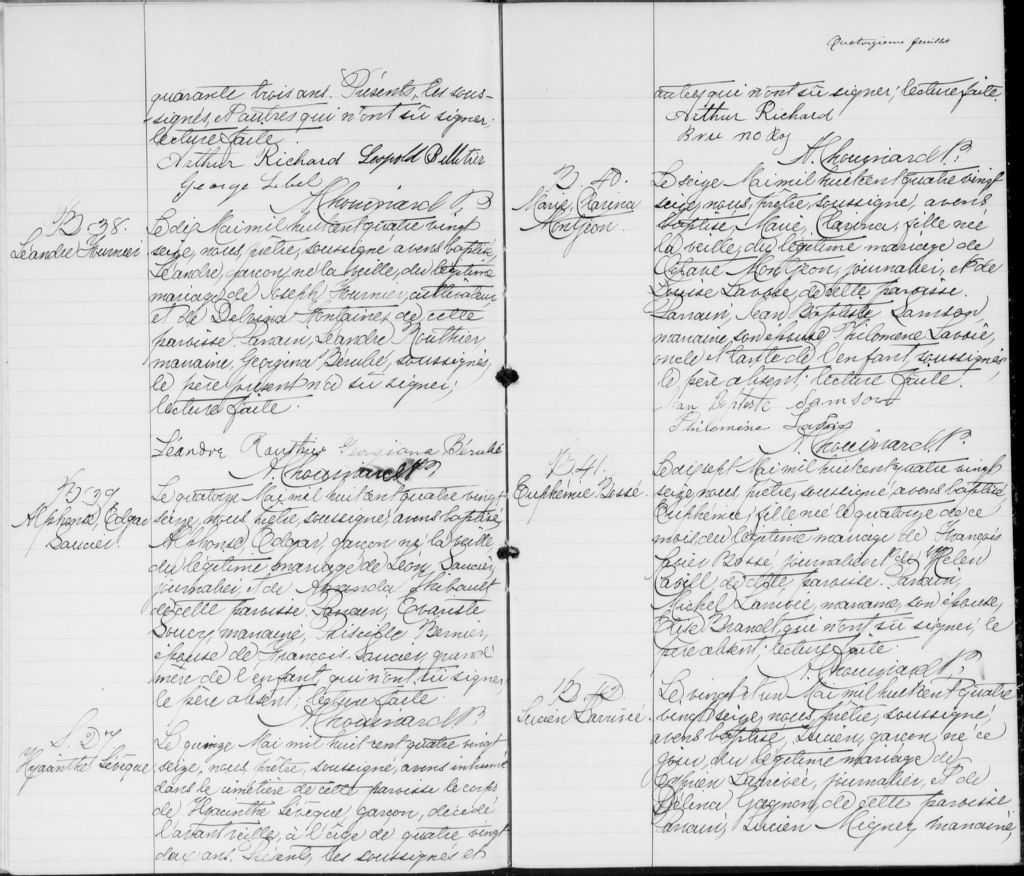 quarante trois ans. Présents, les sous-
signés, et autres qui n'ont su signer;
lecture faite.
Arthur Richard Léopold Pelletier
George Lebel
A Chouinard P.
B 38.
Léandre Fournier
Le dix Mai mil huit cent quatre vingt
seize, nous, prêtre, soussigné avons baptisé,
Léandre, garçon, né la veille, du légitime
mariage de Joseph Fournier, cultivateur
et de Delvina Fontaine, de cette
paroisse. Parrain, Léandre Routhier,
marraine, Georgina Bérubé, soussignés,
le père présent n'a su signer;
lecture faite.
Léandre Routhier Georgiana Bérubé
A Chouinard P.
B 39
Alphonse, Edgar
Saucier.
Le quatorze Mai mil huit cent quatre vingt
seize, nous, prêtre, soussigné, avons baptisé,
Alphonse, Edgar, garçon né la veille
du légitime mariage de Léon, Saucier,
journalier, et de Amanda Thibault
de cette paroisse. Parrain, Evariste
Soucy, marraine, Priscille Bernier,
épouse de François Saucier, grand
mère de l'enfant, qui n'ont su signer,
le père absent; lecture faite.
A Chouinard P.
S. 27
Hyacinthe Lévèque
Le quinze Mai mil huit cent quatre vingt
seize, nous, prêtre, soussigné, avons inhumé
dans le cimetière de cette paroisse le corps
de Hyacinthe Lévèque, garçon, décédé
l'avant veille, à l'âge de quatre vingt
deux ans. Présents, les soussignés et
Quatorzieme feuillet
autres qui n'ont su signer; lecture faite.
Arthur Richard
A. Chouinard P.
B 40.
Marie, Clarina
Montgeon.
Le seize Mai mil huit cent quatre vingt
seize, nous, prêtre, soussigné, avons
baptisé, Marie, Clarina, fille née
la veille, du légitime mariage de
Octave Montgeon, journalier, et de
Louise Lavoie, de cette paroisse.
Parrain, Jean Baptiste Samson,
marraine, son épouse, Philomène Lavoie,
oncle et tante de l'enfant, soussignés,
le père absent; lecture faite.
Jean Baptiste Samson
Philomène Lavoie
A Chouinard P.
B 41.
Euphémie Bossé.
Le dix sept Mai mil huit cent quatre vingt
seize, nous, prêtre, soussigné, avons baptisé
Euphémie, fille née le quatorze de ce
mois du légitime mariage de François
Xavier Bossé, journalier et de Helen
Cavill de cette paroisse. Parrain,
Michel Larivée, marraine, son épouse,
Elise Brandt, qui n'ont su signer, le
père absent; lecture faite.
A. Chouinard P.
B 42
Lucien Larivée.
Le vingt et un Mai mil huit cent quatre
vingt seize, nous, prêtre, soussigné,
avons baptisé, Lucien, garçon, né ce
jour, du légitime mariage de
Cyprien Larivée, journalier, et de
Délina Gagnon, de cette paroisse
Parrain, Lucien Migner, marraine,